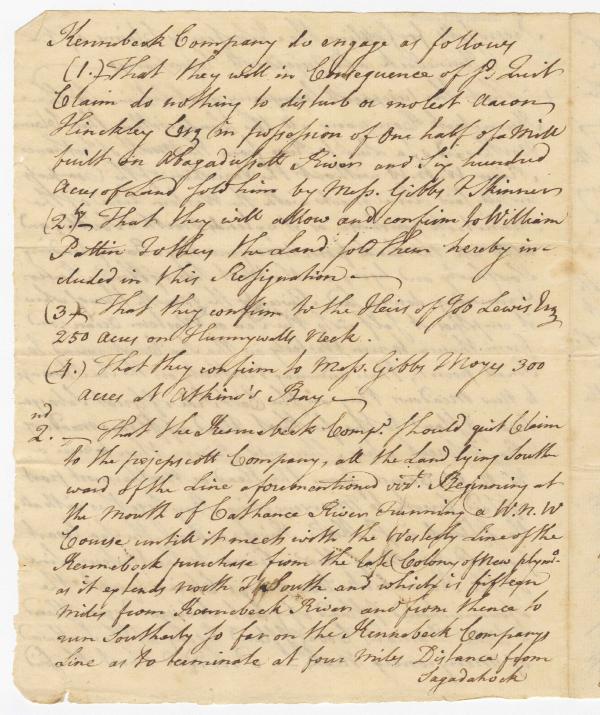 Kennebeck Company do engage as follows
(1.) That they will in Consequence of sd. Quit
Claim do nothing to disturb or molest Aaron
Hinckley Esq in possession of One half of a Mill
built on Abagadussett River and Six hundred
Acres of Land sold him by Mess. Gibbs & Skinner
(2.) That they will allow and confirm to William
Pattin & others the Land sold them hereby in-
cluded in this Resignation —
(3 That they confirm to the Heirs of Job Lewis Esq
250 Acres on Hunnywells Neck.
(4.) That they confirm to Mess. Gibbs & Noyes 300
Acres at Atkins's Bay —
2.nd — That the Kennebeck Compy. should quit Claim
to the pejepscott Company, all the Land lying South-
ward of the Line aforementioned vizt. Beginning at
the Mouth of Cathance River running a W.N.W
Course untill it meets with the Westerly Line of the
Kennebeck purchase from the late Colony of New plymo.
as it extends north & South and which is fifteen
Miles from Kennebeck River and from thence to
run Southerly so far on the Kennebeck Companys
Line as to terminate at four Miles Distance from
Sagadahock